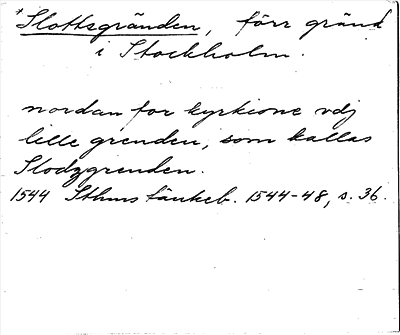 *Slottsgränden, förr gränd
i Stockholm.
nordan for kyrkione vdj
lille grenden, som kallas
Slodzgrenden.
1544 Sthms tänkeb. 1544-48, s. 36.